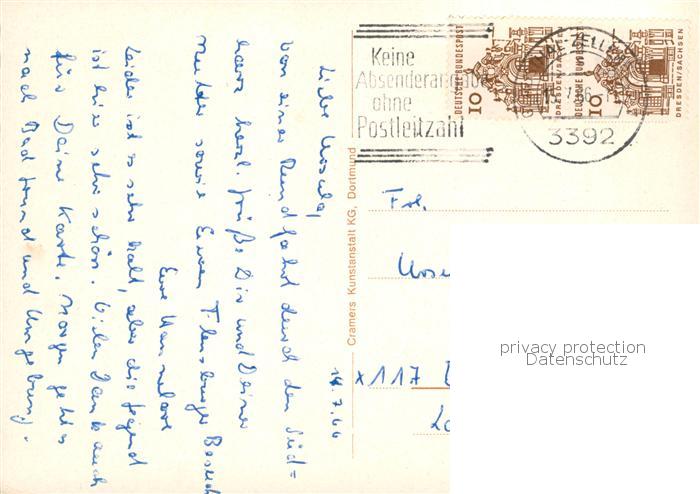 Liebe Ursula,
von einer Rundfahrt durch den Süd=
harz herzl. Grüße Dir und Deiner
Mutter sowie Euren Flensburger Besuch
Eure Hannelore
Leider ist es sehr kalt, aber die Gegend
ist hier sehr schön. Vielen Dank auch
für Deine Karte. Morgen geht es
nach Bad Grund und Umgebung.
14.7.66
Cramers Kunstanstalt KG, Dortmund
Keine
Absenderangabe
ohne
Postleitzahl
3392
DEUTSCHE BUNDESPOST
10
DRESDEN/SACHSEN
DEUTSCHE BUNDESPOST
10
DRESDEN/SACHSEN
Frl.
x 117
privacy protection
Datenschutz